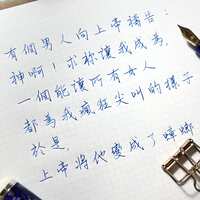 有個男人向上帝禱告：
神啊！求祢讓我成為，
一個能讓所有女人
都為我瘋狂尖叫的樣子
於是，
上帝將他變成了蟑螂